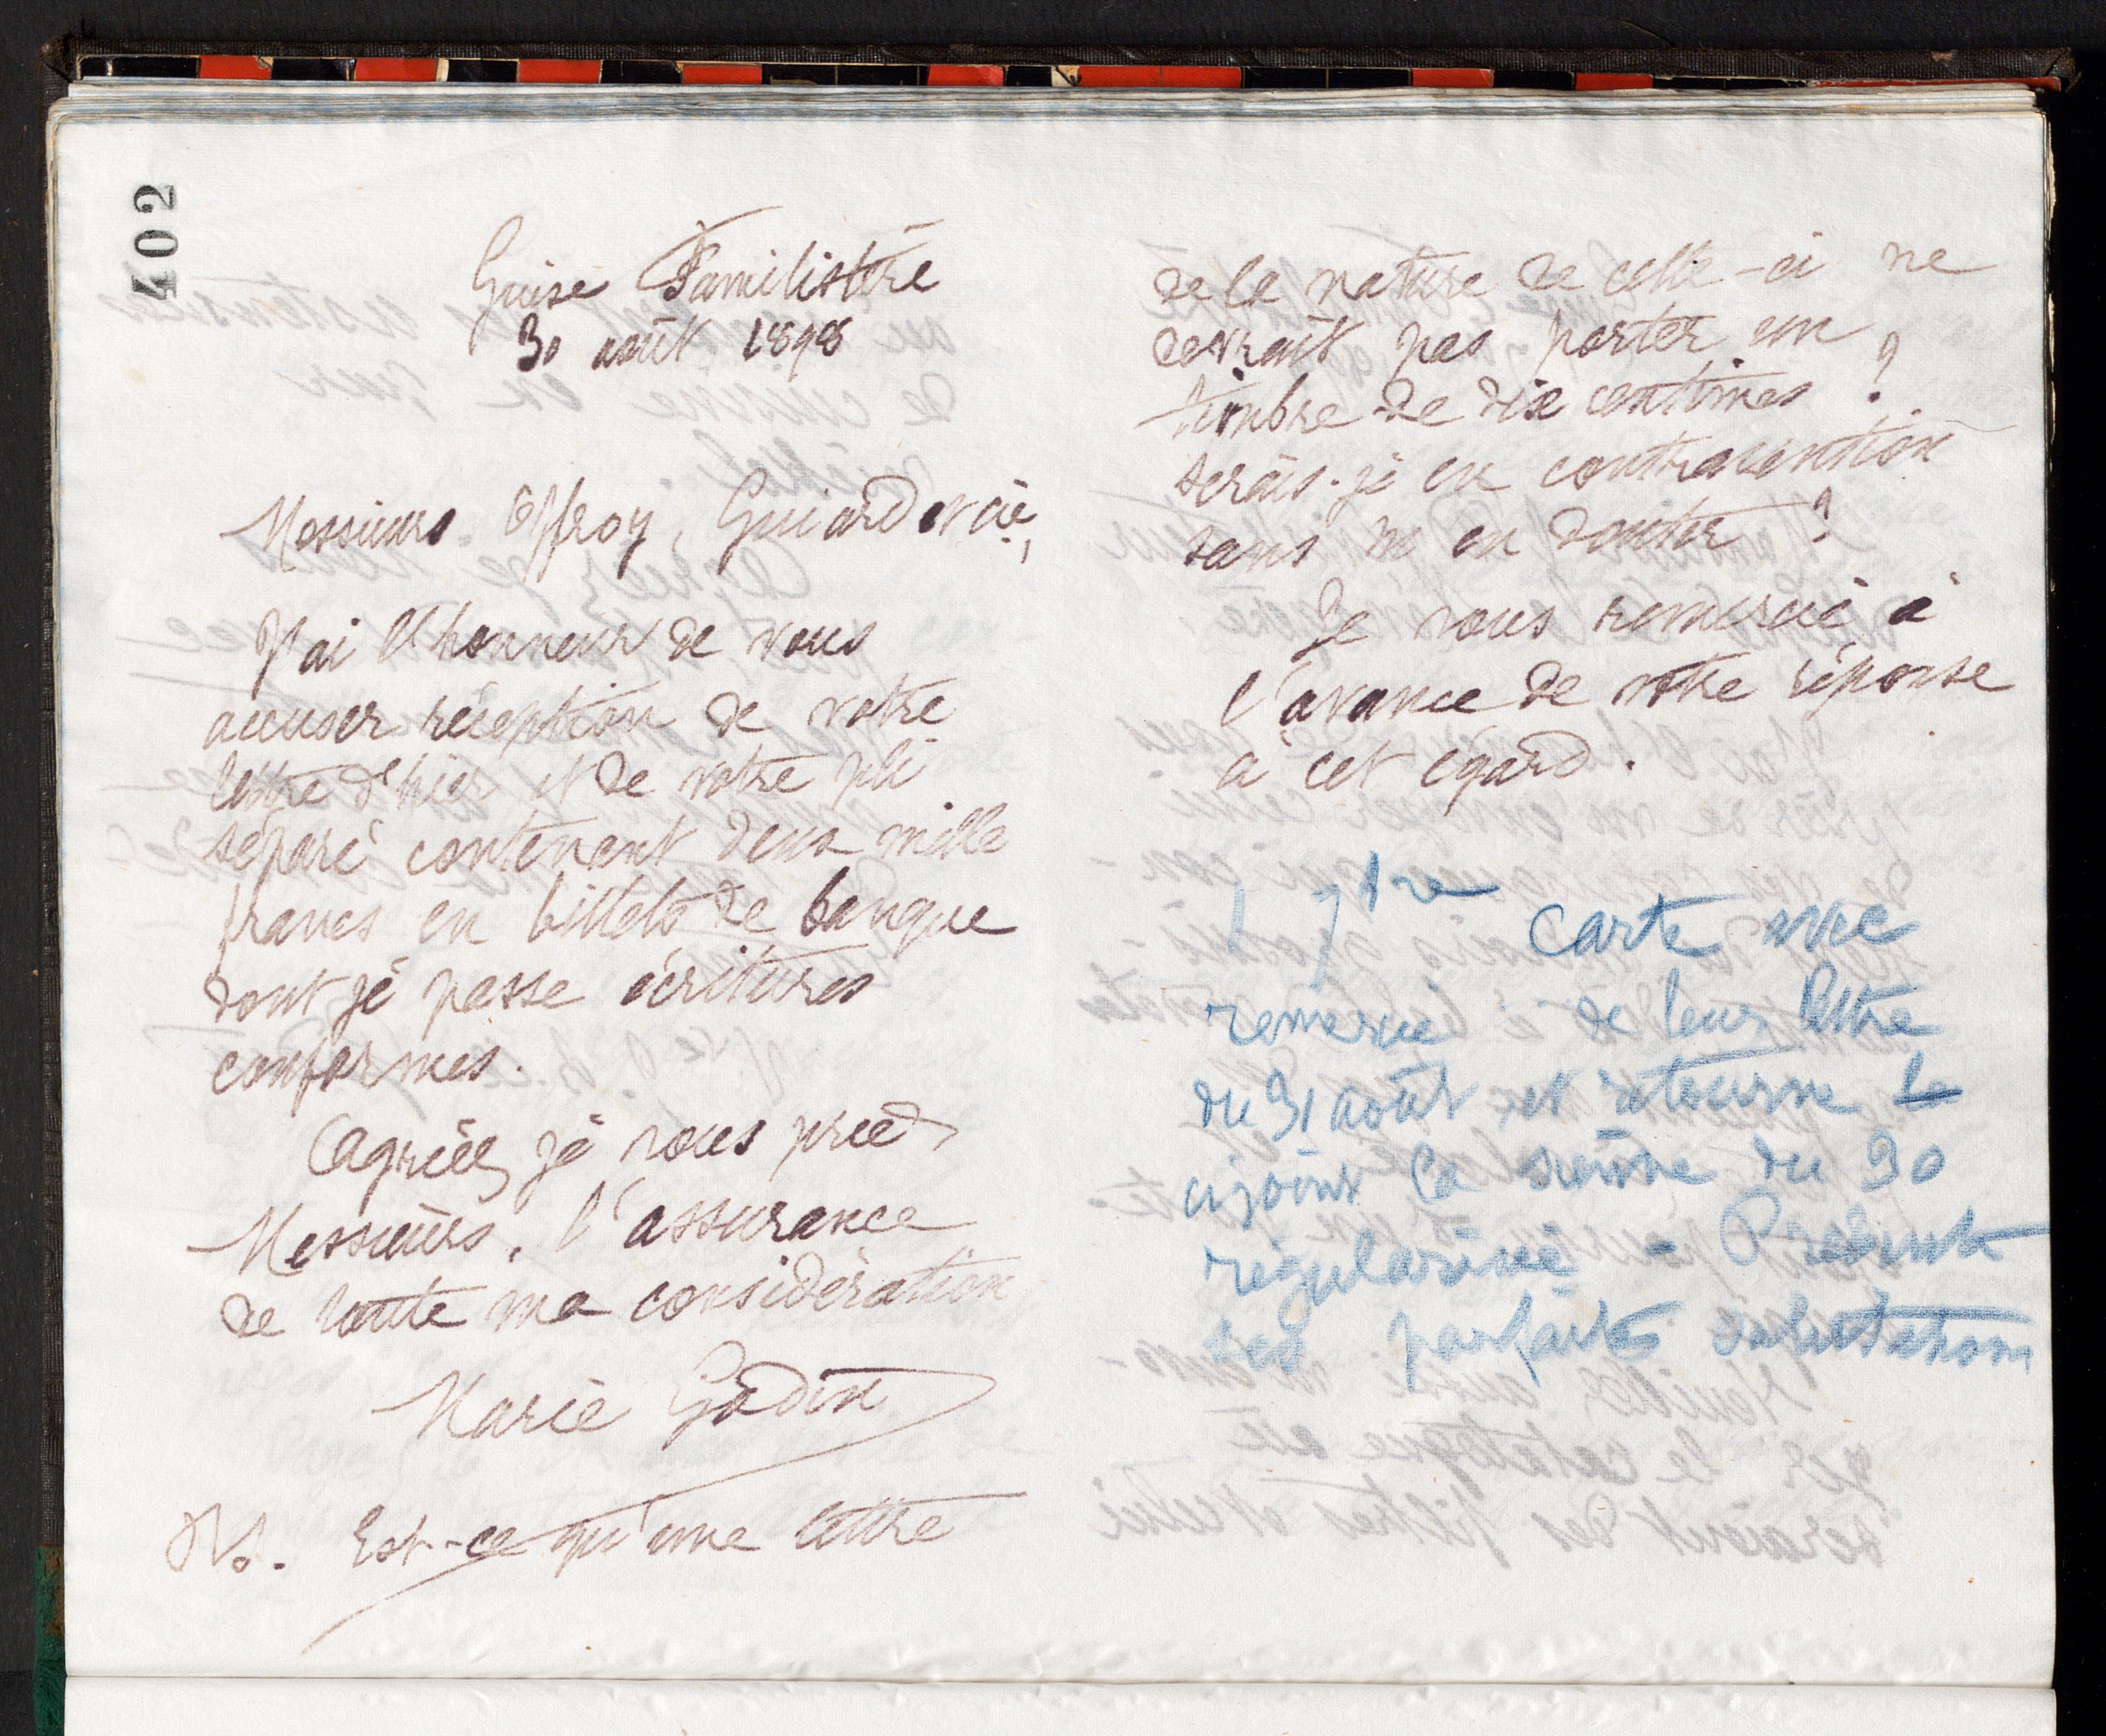 402
Guise Familistère
30 août 1898
Messieurs Offroy, Guiard et cie,
J'ai l'honneur de vous
accuser réception de votre
lettre d'hier et de votre pli
séparé contenant deux mille
francs en billets de banque
dont je passe écritures
conformes.
Agréez je vous prie
Messieurs, l'assurance
de toute ma considération
Marie Godin
Est-ce qu'une lettre
de la nature de celle-ci ne
devrait pas porter un
timbre de dix centimes ?
serais-je en contravention
sans m'en douter ?
Je vous remercie à
l'avance de votre réponse
à cet égard.
1 7bre carte avec
remercie de leur lettre
du 31 août et retourne le
cijoint la sienne du 30
régularisée - Présente
ses parfaites salutations